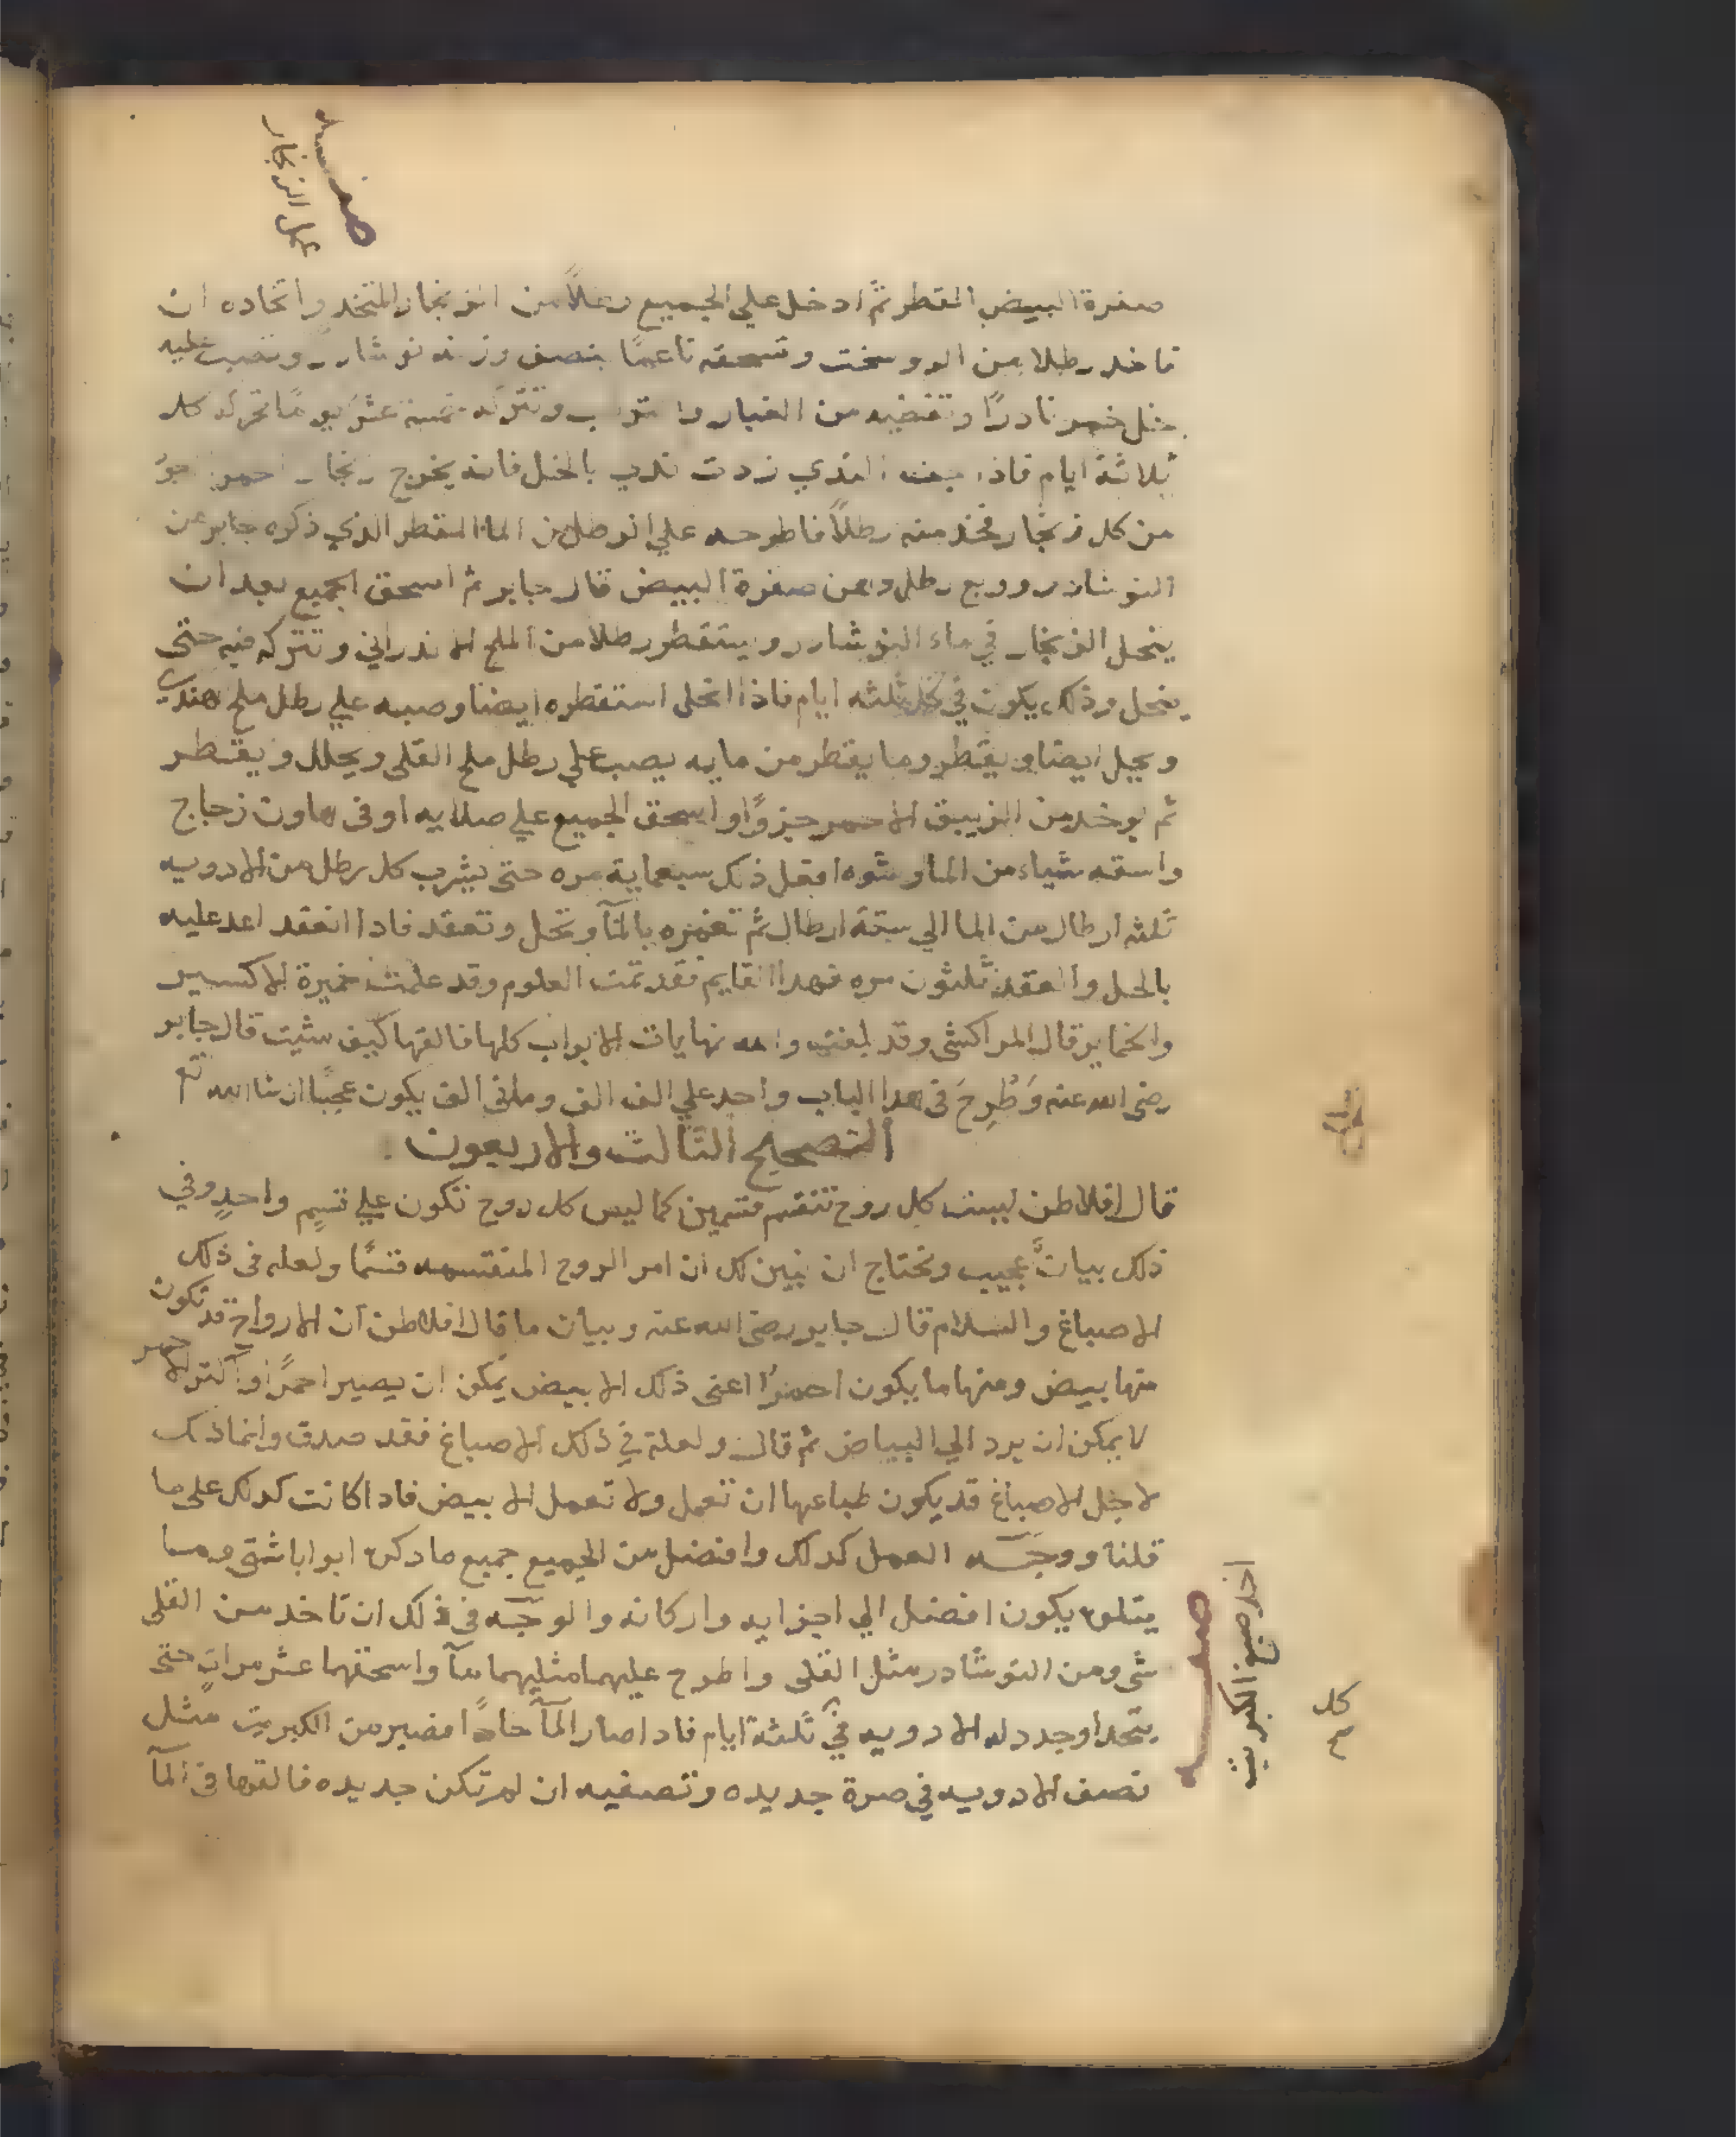 صفة
عمل الزنجار
صفرة البيض المقطر ثم ادخل علي الجميع رطلاً من الزنجار المتخد واتخاده ان
تاخد رطلا من الروسختج وتسحقه ناعمًا بنصف وزنه نوشادر وتصب عليه
خل خمر نادرًا وتغطيه من الغبار والتراب وتتركه خمسة عشر يومًا تحركه كل
ثلاثة ايام فاذا جف الذي زدت ندي بالخل فانه يخرج زنجار احمر اجود
من كل زنجار فخذ منه رطلاً فاطرحه علي الرطل من الما المقطر الذي ذكره جابر من
النوشادر وربع رطل دهن صفرة البيض قال جابر ثم اسحق الجميع بعد ان
ينحل الزنجار في ماء النوشادر ويتقطر رطلا من الملح الاندراني وتتركه فيه حتى
ينحل وذلك يكون في كل ثلثه ايام فاذا انحل استقطره ايضا وصبه علي رطل ملح هندي
ويحل ايضا ويقطر وما يقطر من مايه يصب علي رطل ملح القلي ويحلل ويقطر
ثم يوخد من الزيبق الاحمر جزوًا واسحق الجميع علي صلايه او في هاون زجاج
واسقه شياء من الما وشوه افعل ذلك سبعماية مره حتى يشرب كل رطل من الادويه
ثلثه ارطال من الما الي ستة ارطال ثم تغمره بالمآ وتحل وتعقد فادا انعقد اعد عليه
بالحل والعقد ثلثون مره فهدا القايم فقد تمت العلوم وقد علمت خميرة الاكسير
والخماير قال المراكشي وقد بلغت والله نهايات الابواب كلها فالقها كيف شيت قال جابر
رضى الله عنه وَطُرِحَ فى هدا الباب واحد علي الف الف ومائى الف يكون عجبًا ان شا الله تع
التصحيح الثالث والاربعون
قال افلاطن ليست كل روح تنقسم قسمين كما ليس كل روح تكون علي قسمٍ واحدٍ وفي
ذلك بيانٌ عجيب ونحتاج ان نبين لك ان امر الروح المنقسمه قسمًا ولعله فى ذلك
الاصباغ والسلام قال جابر رضى الله عنه وبيان ما قال افلاطن ان الارواح قد تكون
منها بيض ومنها ما يكون احمرًا اعنى ذلك الابيض يمكن ان يصير احمرًا واكثر الاحمر
لا يمكن ان يرد الي البياض ثم قال ولعلة في ذلك الاصباغ فقد صدق وانما ذلك
لاجل الاصباغ قد يكون طباعها ان تعمل ولا تعمل الابيض فادا كانت كدلك على ما
قلنا ووجه العمل كدلك وافضل من الجميع جميع ما دكر ابوابا شتى ومما
يتلوه يكون افضل الي اجزايه واركانه والوجه فى ذلك ان تاخد من القلي
شى ومن النوشادر مثل القلى واطرح عليهما مثليهما مآ واسحقهما عشر مرات حتى
يتحدا وجدد له الادويه في ثلثة ايام فادا صار المآ حادًا فصير من الكبريت مثل
نصف الادويه في صرة جديده وتصفيه ان لم تكن جديده فالقها فى المآ
صفه
اخد صبغ الكبريت
كل